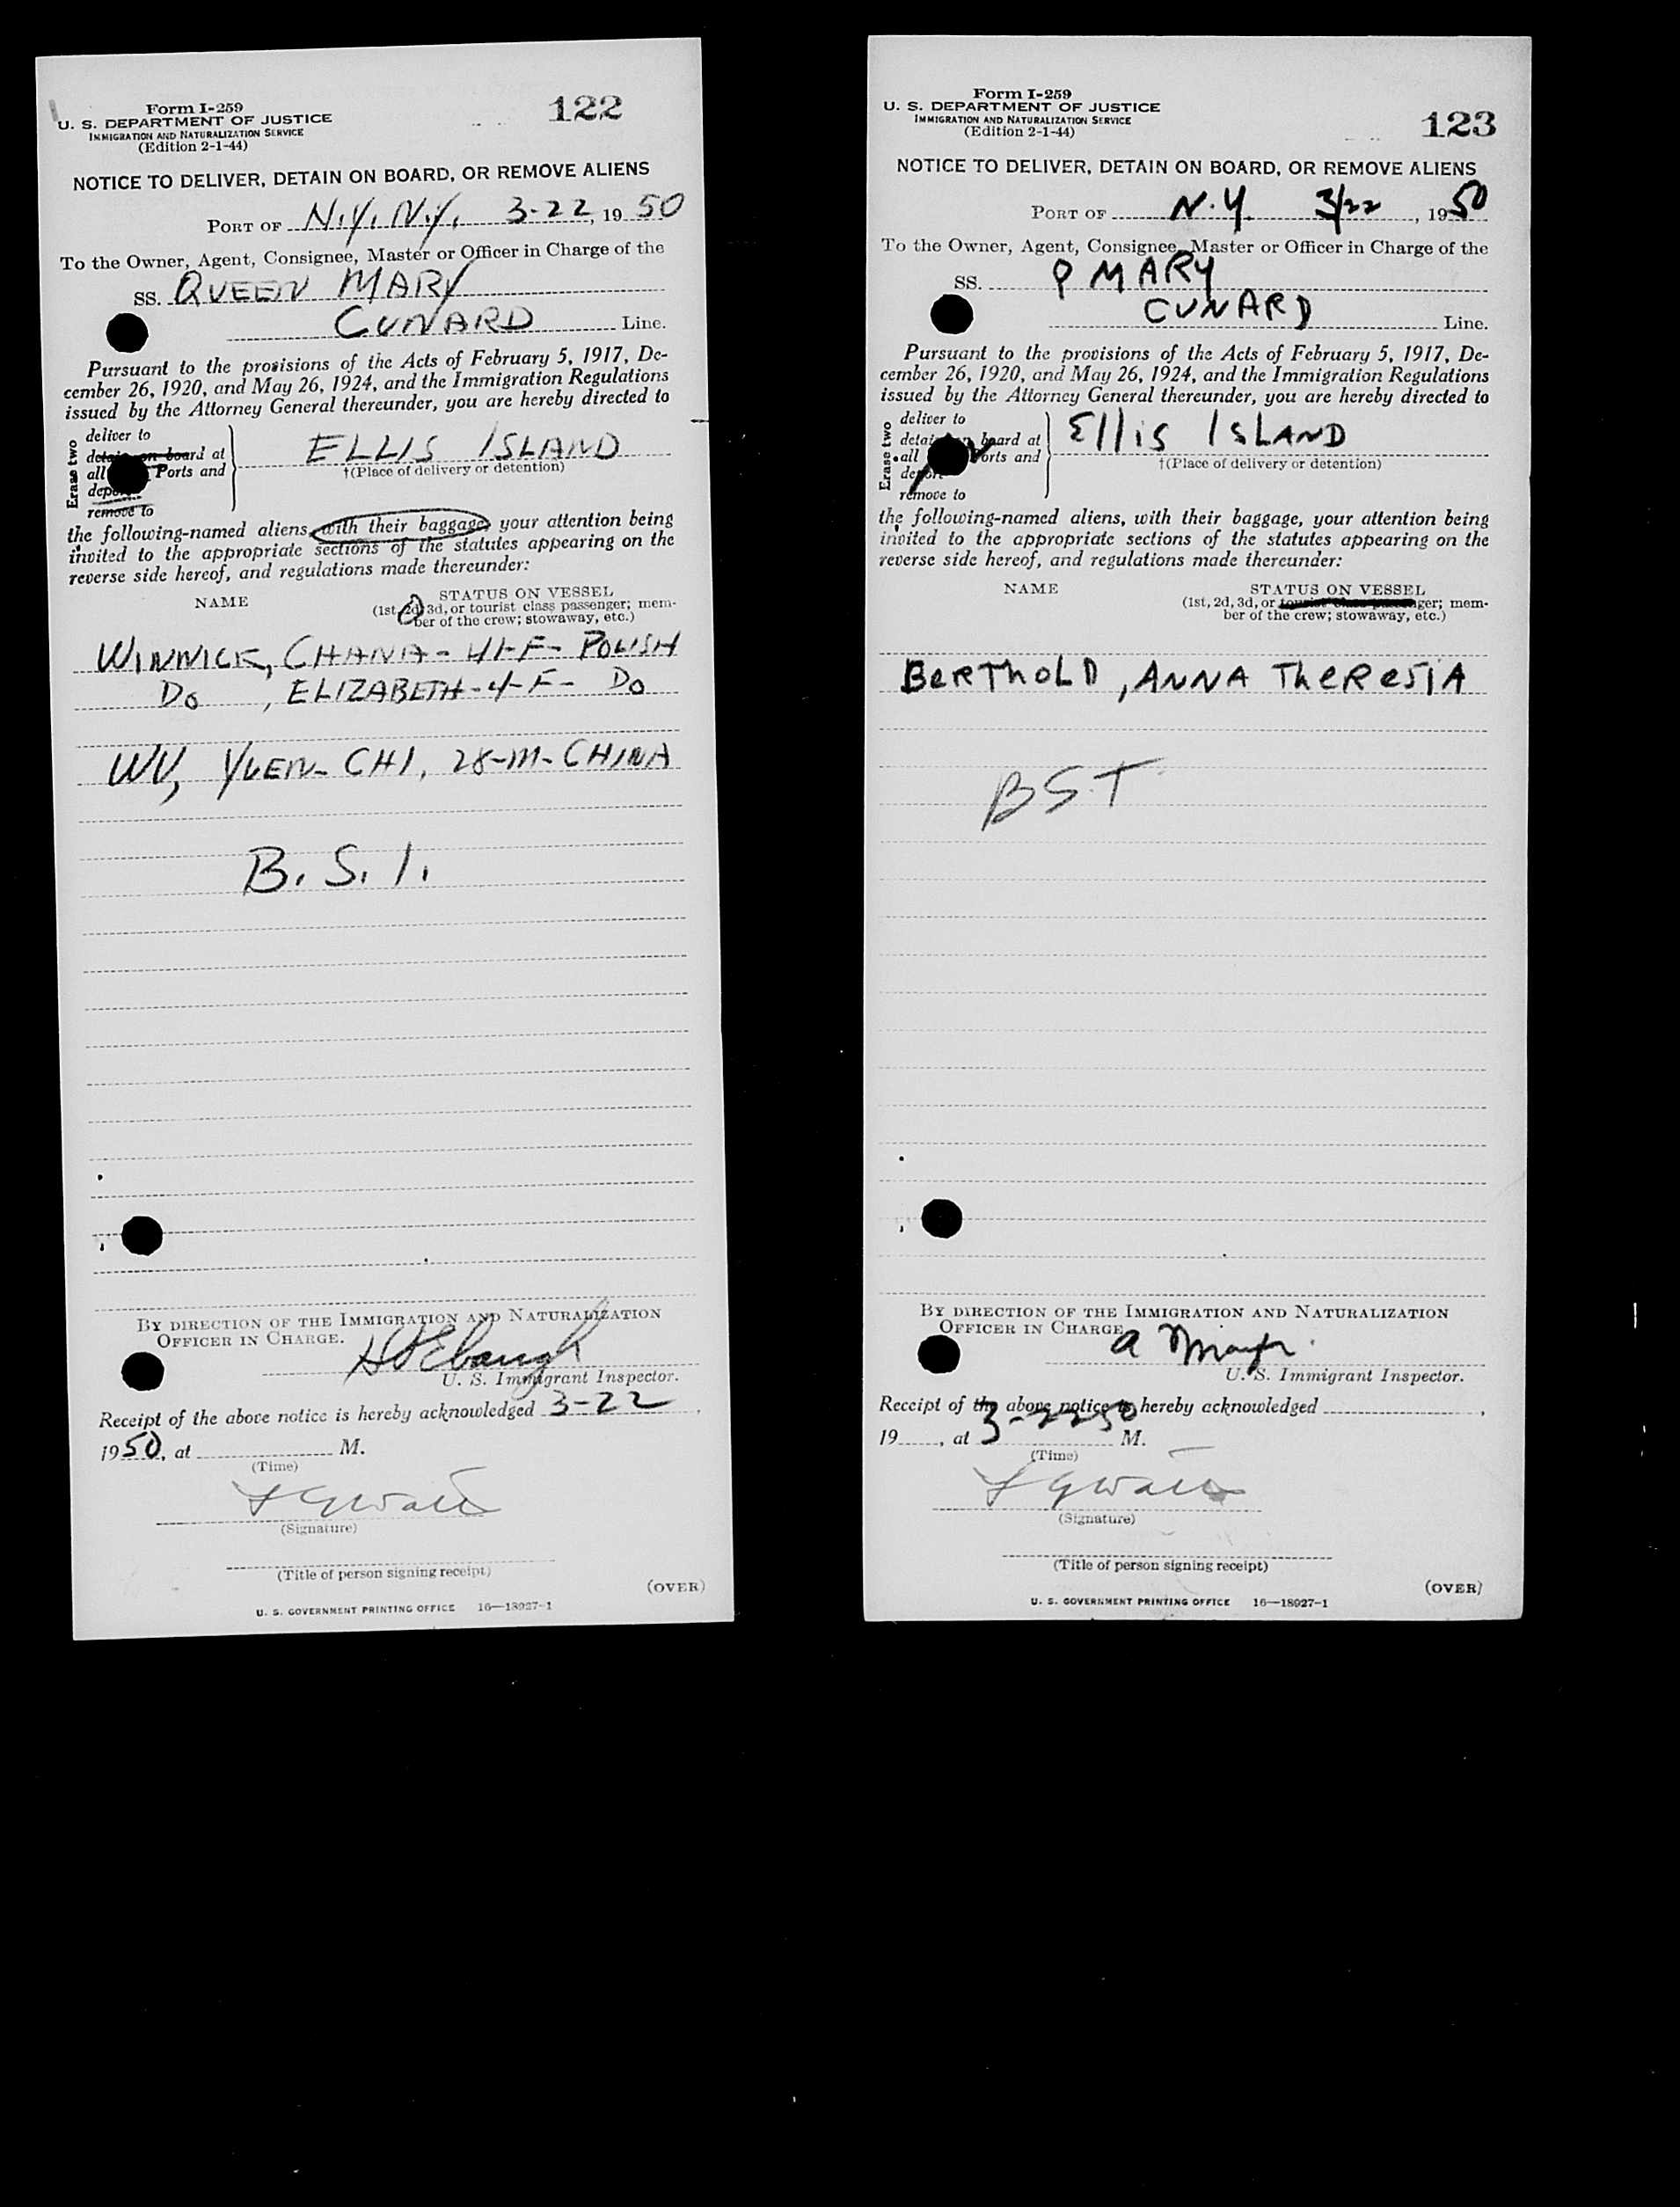 Form I-259
U. S. DEPARTMENT OF JUSTICE
IMMIGRATION AND NATURALIZATION SERVICE
(Edition 2-1-44)
122
NOTICE TO DELIVER, DETAIN ON BOARD, OR REMOVE ALIENS
PORT OF N.Y. N.Y. 3-22, 1950
To the Owner, Agent, Consignee, Master or Officer in Charge of the
SS. QUEEN MARY
CUNARD Line.
Pursuant to the provisions of the Acts of February 5, 1917, De-
cember 26, 1920, and May 26, 1924, and the Immigration Regulations
issued by the Attorney General thereunder, you are hereby directed to
Erase two
deliver to
detain on board at
all Ports and
deport
remove to
ELLIS ISLAND
†(Place of delivery or detention)
the following-named aliens, with their baggage, your attention being
invited to the appropriate sections of the statutes appearing on the
reverse side hereof, and regulations made thereunder:
NAME
STATUS ON VESSEL
(1st, 2d, 3d, or tourist class passenger; mem-
ber of the crew; stowaway, etc.)
WINNICK, CHANA - 41-F- POLISH
DO , ELIZABETH-4-F- DO
WU, YUEN-CHI, 28-M-CHINA
B. S. I.
BY DIRECTION OF THE IMMIGRATION AND NATURALIZATION
OFFICER IN CHARGE.
U. S. Immigrant Inspector.
Receipt of the above notice is hereby acknowledged 3-22,
1950, at M.
(Time)
(Signature)
(Title of person signing receipt)
(OVER)
U. S. GOVERNMENT PRINTING OFFICE 16—18927-1
Form I-259
U. S. DEPARTMENT OF JUSTICE
IMMIGRATION AND NATURALIZATION SERVICE
(Edition 2-1-44)
123
NOTICE TO DELIVER, DETAIN ON BOARD, OR REMOVE ALIENS
PORT OF N.Y. 3/22, 1950
To the Owner, Agent, Consignee, Master or Officer in Charge of the
SS. Q MARY
CUNARD Line.
Pursuant to the provisions of the Acts of February 5, 1917, De-
cember 26, 1920, and May 26, 1924, and the Immigration Regulations
issued by the Attorney General thereunder, you are hereby directed to
Erase two
deliver to
detain on board at
all Ports and
deport
remove to
Ellis ISLAND
†(Place of delivery or detention)
the following-named aliens, with their baggage, your attention being
invited to the appropriate sections of the statutes appearing on the
reverse side hereof, and regulations made thereunder:
NAME
STATUS ON VESSEL
(1st, 2d, 3d, or tourist class passenger; mem-
ber of the crew; stowaway, etc.)
BERTHOLD, ANNA THERESIA
BSI
BY DIRECTION OF THE IMMIGRATION AND NATURALIZATION
OFFICER IN CHARGE.
U. S. Immigrant Inspector.
Receipt of the above notice is hereby acknowledged ,
19 , at 3-22 50 M.
(Time)
(Signature)
(Title of person signing receipt)
(OVER)
U. S. GOVERNMENT PRINTING OFFICE 16—18927-1